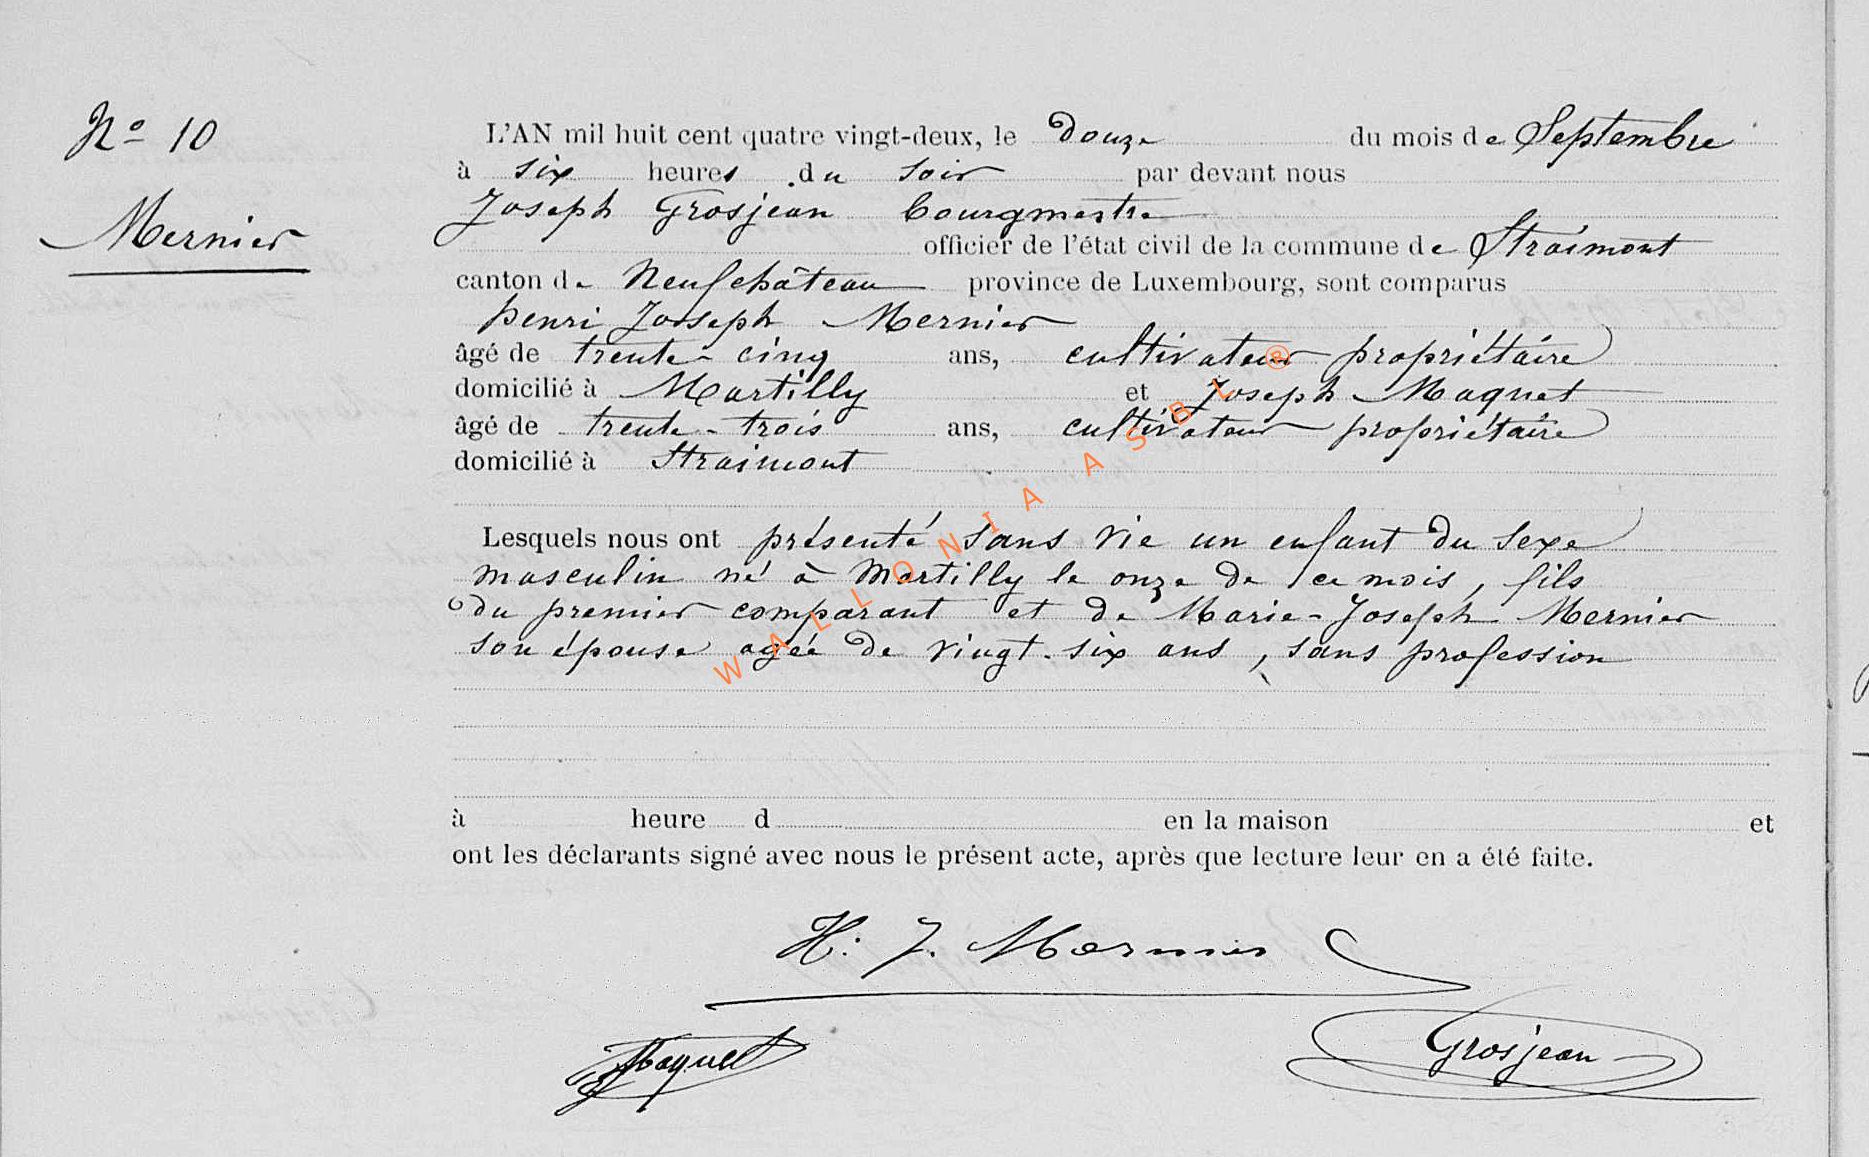 No 10
Mernier
L'AN mil huit cent quatre vingt-deux, le douze du mois de Septembre
à six heures du soir par devant nous
Joseph Grosjean bourgmestre
officier de l'état civil de la commune de Straimont
canton de Neufchâteau province de Luxembourg, sont comparus
henri Joseph Mernier
âgé de trente-cinq ans, cultivateur propriétaire
domicilié à Martilly et Joseph Maquet
âgé de trente-trois ans, cultivateur propriétaire
domicilié à Straimont
Lesquels nous ont présenté sans vie un enfant du sexe
masculin né à Martilly le onze de ce mois, fils
du premier comparant et de Marie-Joseph Mernier
son épouse agée de vingt-six ans, sans profession
à heure d en la maison et
ont les déclarants signé avec nous le présent acte, après que lecture leur en a été faite.
H. J. Mernier
Maquet
Grosjean
WALLONIA ASBL ®